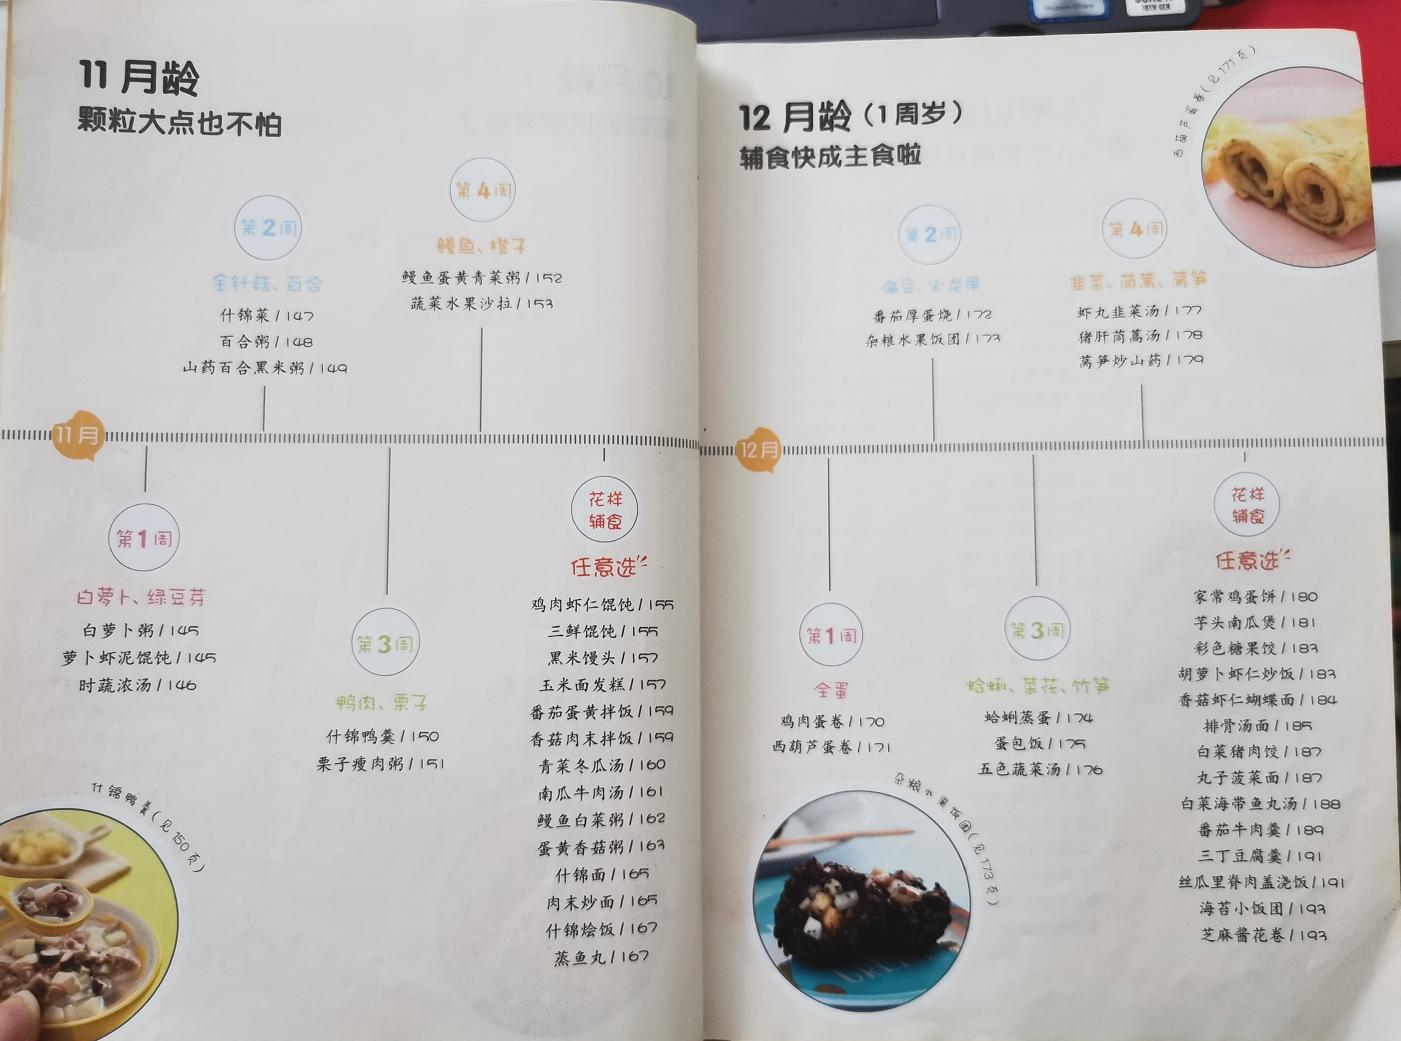 11 月龄
颗粒大点也不怕
第2周
金针菇、百合
什锦菜/147
百合粥/148
山药百合黑米粥/149
第4周
鳗鱼、橙子
鳗鱼蛋黄青菜粥/152
蔬菜水果沙拉/153
11月
第1周
白萝卜、绿豆芽
白萝卜粥/145
萝卜虾泥馄饨/145
时蔬浓汤/146
第3周
鸭肉、栗子
什锦鸭羹/150
栗子瘦肉粥/151
花样
辅食
任意选
鸡肉虾仁馄饨/155
三鲜馄饨/155
黑米馒头/157
玉米面发糕/157
番茄蛋黄拌饭/159
香菇肉末拌饭/159
青菜冬瓜汤/160
南瓜牛肉汤/161
鳗鱼白菜粥/162
蛋黄香菇粥/163
什锦面/165
肉末炒面/165
什锦烩饭/167
蒸鱼丸/167
什锦鸭羹(见150页)
12 月龄（1周岁）
辅食快成主食啦
西葫芦蛋卷(见171页)
第2周
扁豆、火龙果
番茄厚蛋烧/172
杂粮水果饭团/173
第4周
韭菜、茼蒿、莴笋
虾丸韭菜汤/177
猪肝茼蒿汤/178
莴笋炒山药/179
12月
第1周
全蛋
鸡肉蛋卷/170
西葫芦蛋卷/171
第3周
蛤蜊、菜花、竹笋
蛤蜊蒸蛋/174
蛋包饭/175
五色蔬菜汤/176
花样
辅食
任意选
家常鸡蛋饼/180
芋头南瓜煲/181
彩色糖果饺/183
胡萝卜虾仁炒饭/183
香菇虾仁蝴蝶面/184
排骨汤面/185
白菜猪肉饺/187
丸子菠菜面/187
白菜海带鱼丸汤/188
番茄牛肉羹/189
三丁豆腐羹/191
丝瓜里脊肉盖浇饭/191
海苔小饭团/193
芝麻酱花卷/193
杂粮水果饭团(见173页)